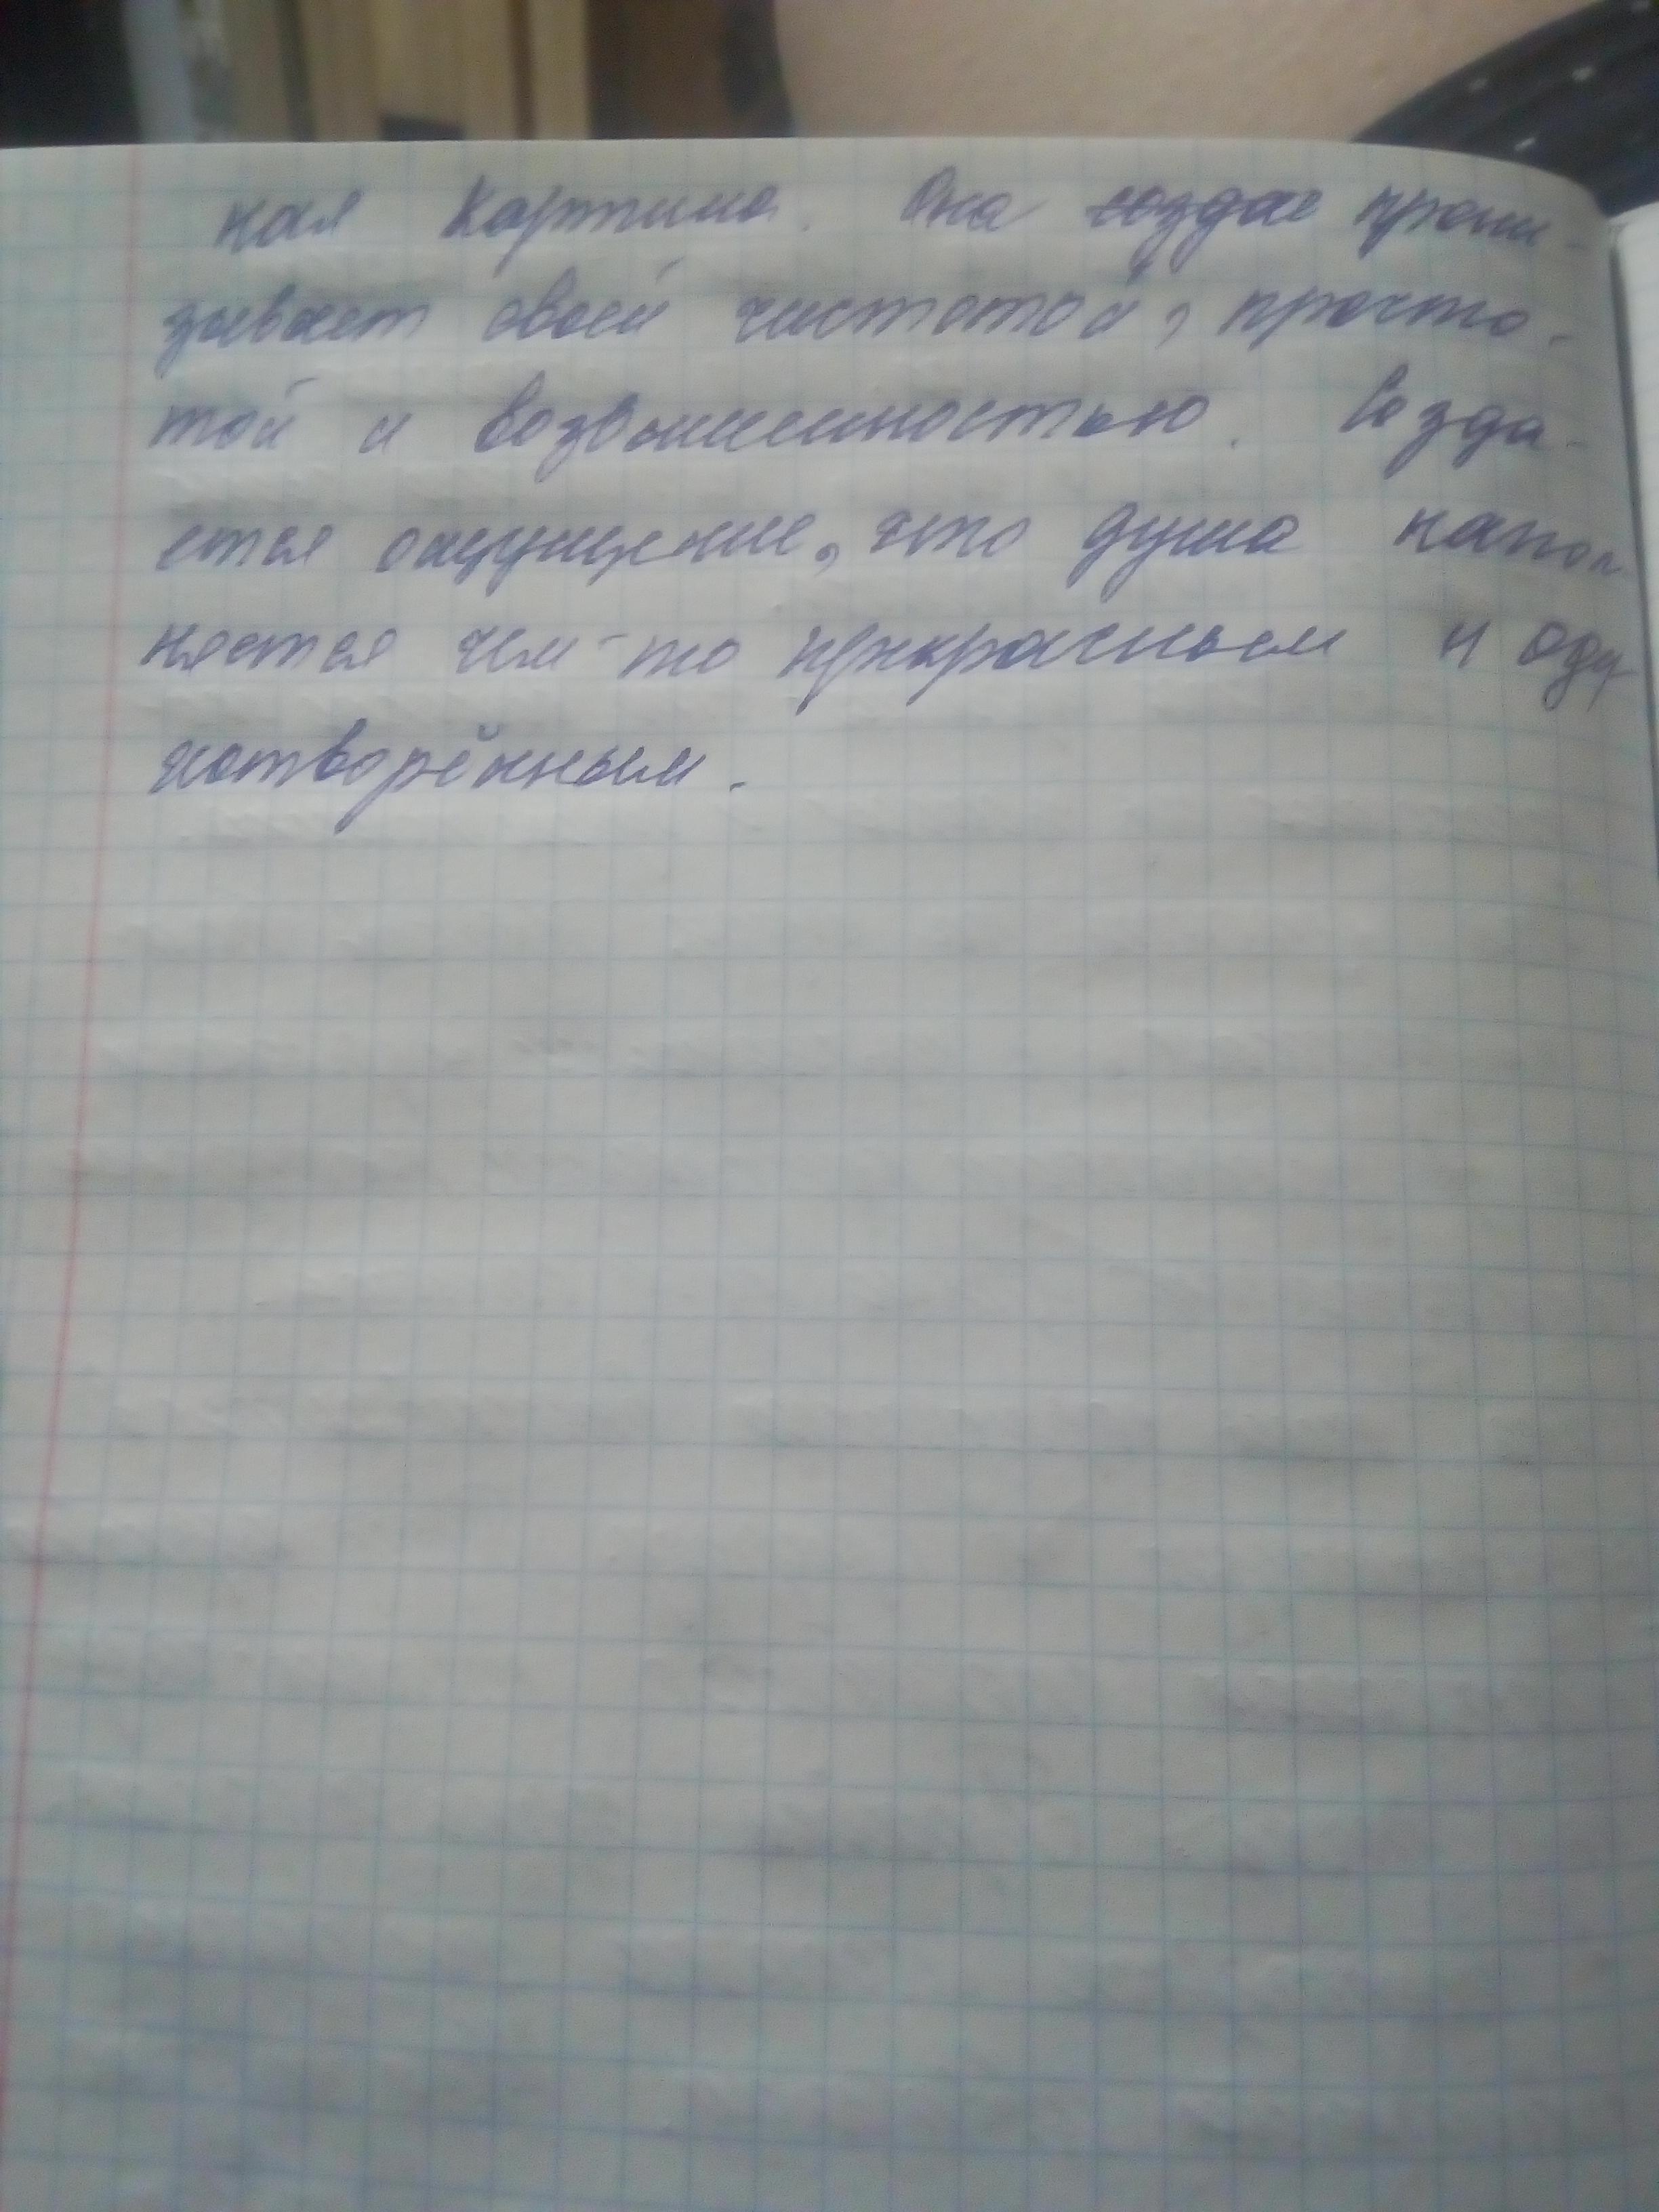 ная картина. Она создае прони-
зывает своей чистотой, просто-
той и возвышенностью. Созда-
ется ощущение, что душа напол-
няется чем-то прекрасным и оду-
хотворённым.